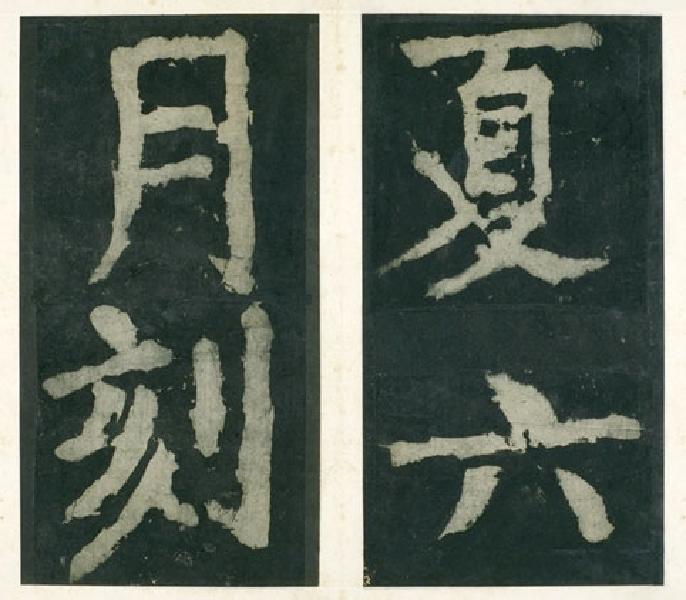 夏六
月刻